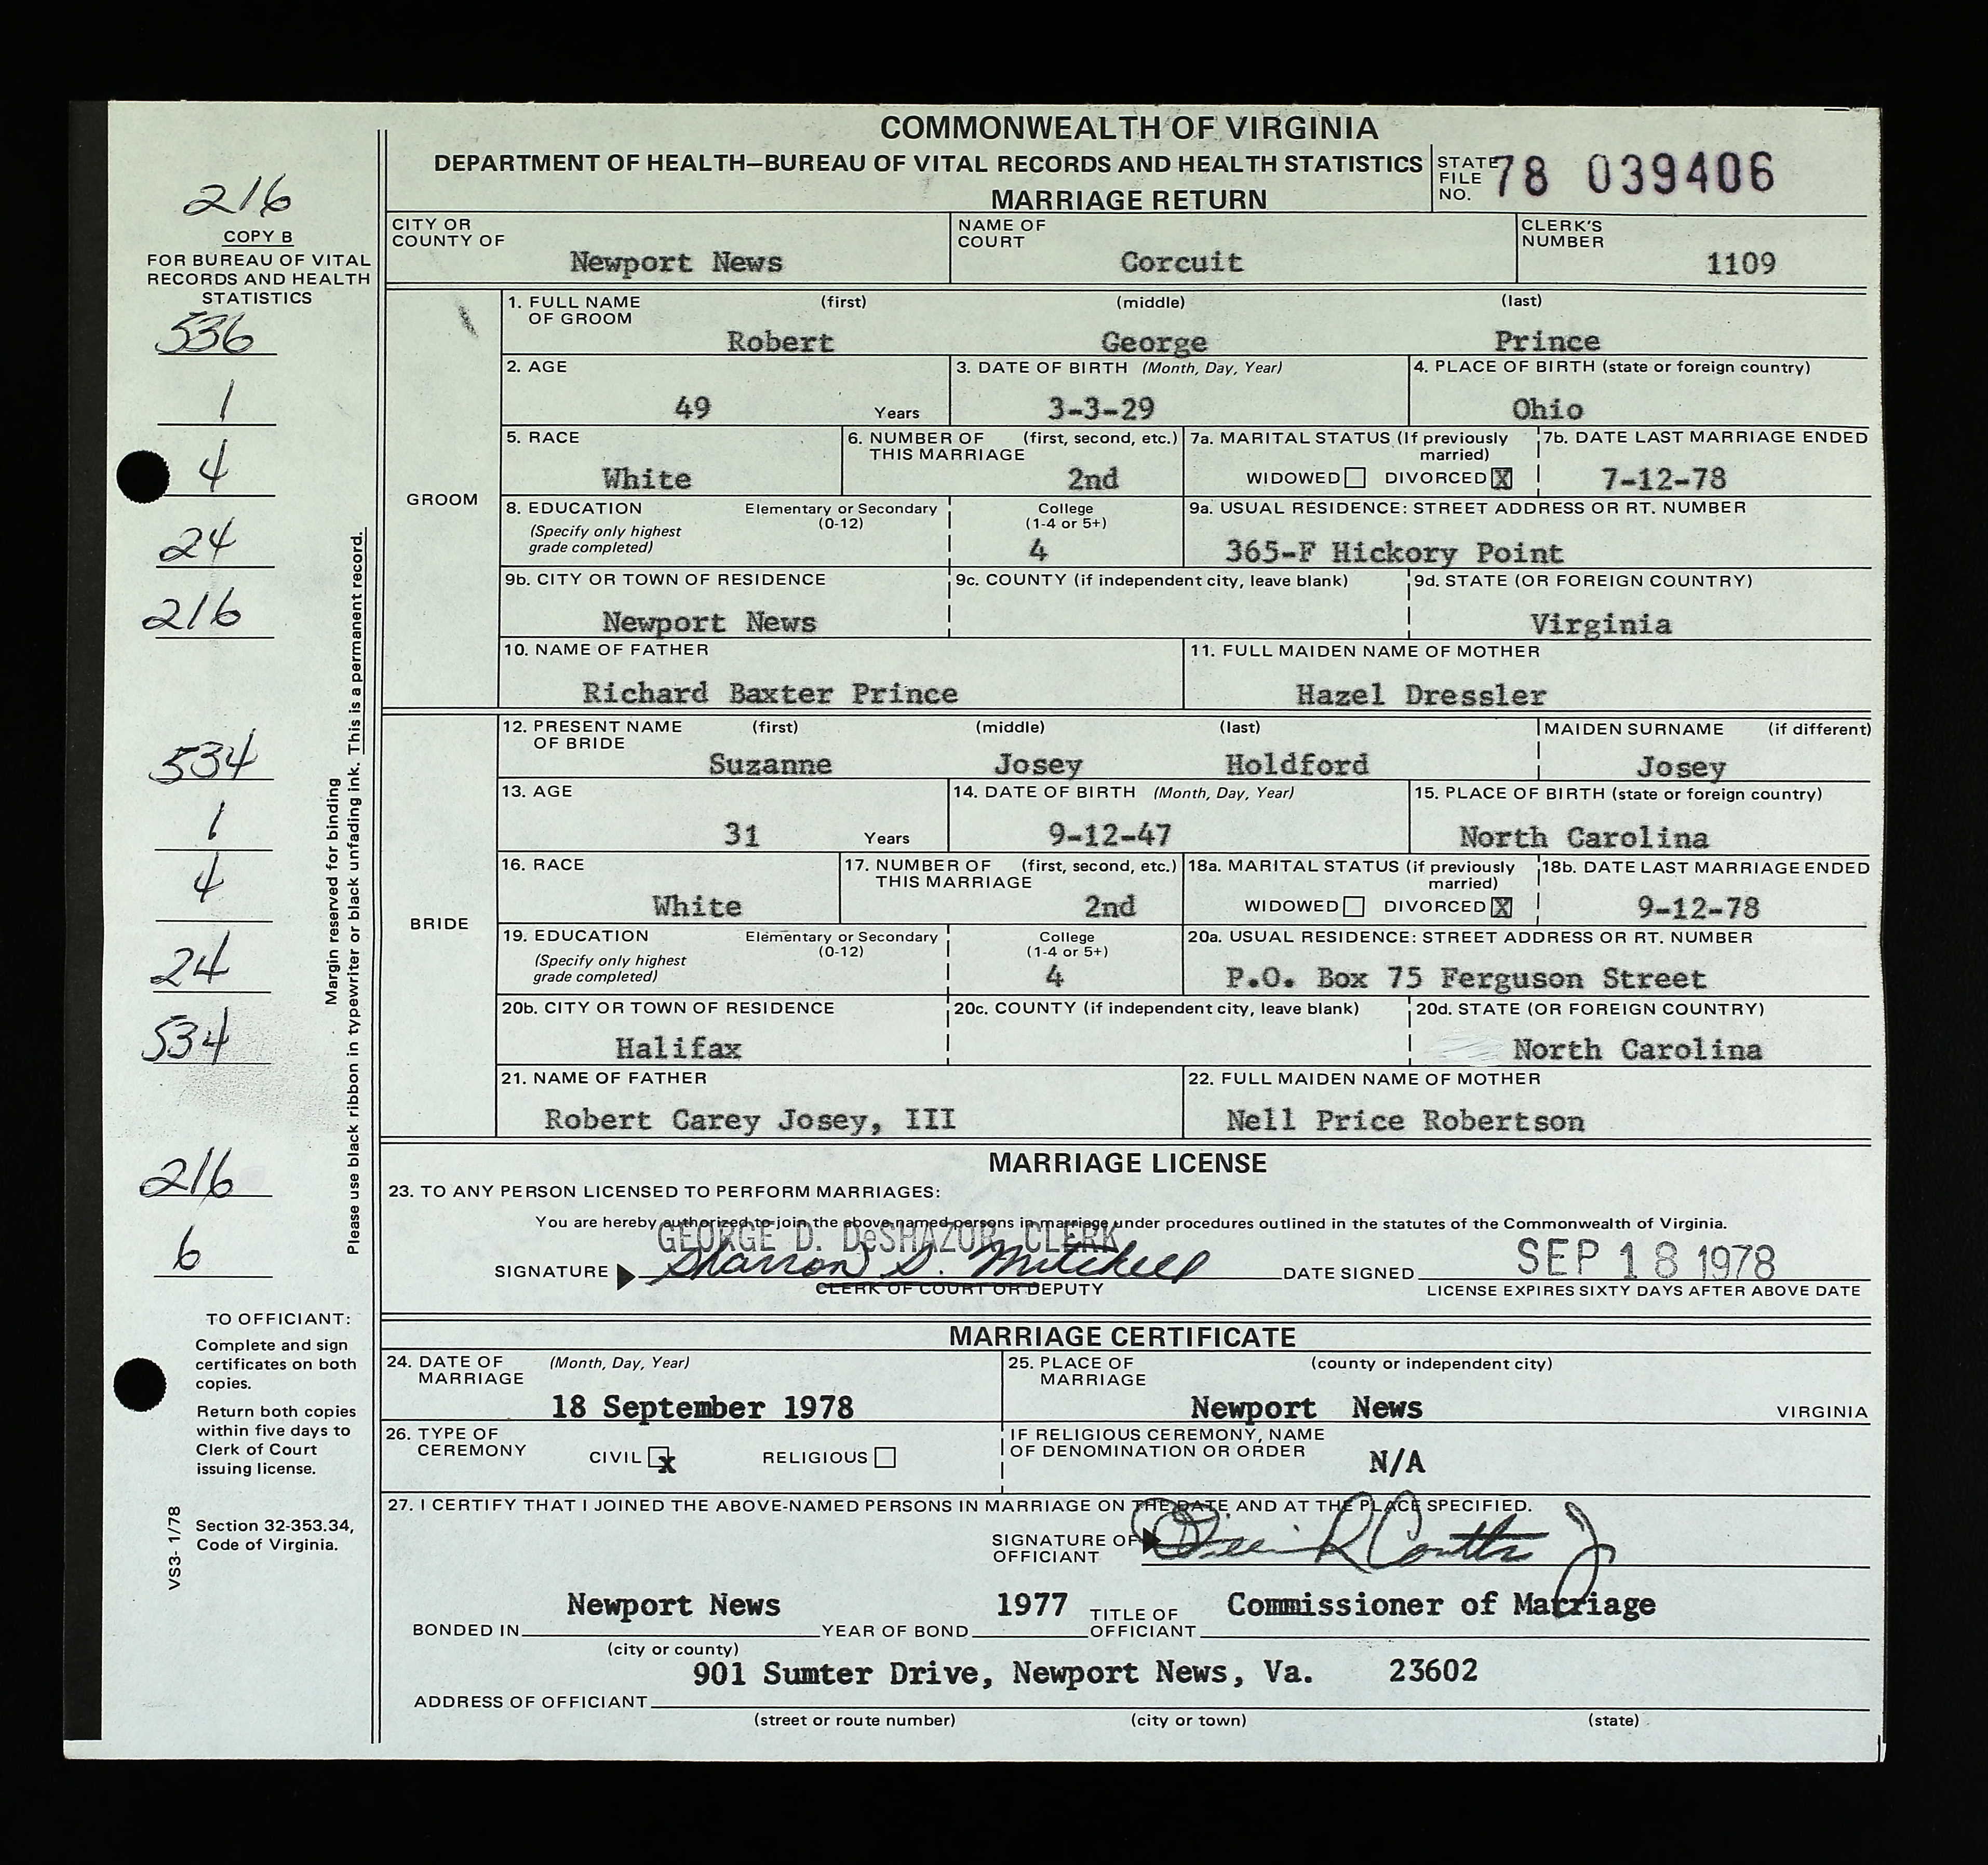 COMMONWEALTH OF VIRGINIA
DEPARTMENT OF HEALTH—BUREAU OF VITAL RECORDS AND HEALTH STATISTICS
MARRIAGE RETURN
STATE FILE NO. 78 039406
216
COPY B
FOR BUREAU OF VITAL
RECORDS AND HEALTH
STATISTICS
536
1
4
24
216
534
1
4
24
534
216
6
Margin reserved for binding
Please use black ribbon in typewriter or black unfading ink. This is a permanent record.
TO OFFICIANT:
Complete and sign
certificates on both
copies.
Return both copies
within five days to
Clerk of Court
issuing license.
Section 32-353.34,
Code of Virginia.
VS3- 1/78
CITY OR COUNTY OF Newport News
NAME OF COURT Corcuit
CLERK'S NUMBER 1109
GROOM
1. FULL NAME OF GROOM (first) (middle) (last)
Robert George Prince
2. AGE 49 Years
3. DATE OF BIRTH (Month, Day, Year) 3-3-29
4. PLACE OF BIRTH (state or foreign country) Ohio
5. RACE White
6. NUMBER OF THIS MARRIAGE (first, second, etc.) 2nd
7a. MARITAL STATUS (If previously married)
WIDOWED DIVORCED X
7b. DATE LAST MARRIAGE ENDED 7-12-78
8. EDUCATION (Specify only highest grade completed)
Elementary or Secondary (0-12)
College (1-4 or 5+) 4
9a. USUAL RESIDENCE: STREET ADDRESS OR RT. NUMBER
365-F Hickory Point
9b. CITY OR TOWN OF RESIDENCE Newport News
9c. COUNTY (if independent city, leave blank)
9d. STATE (OR FOREIGN COUNTRY) Virginia
10. NAME OF FATHER Richard Baxter Prince
11. FULL MAIDEN NAME OF MOTHER Hazel Dressler
BRIDE
12. PRESENT NAME OF BRIDE (first) (middle) (last)
Suzanne Josey Holdford
MAIDEN SURNAME (if different) Josey
13. AGE 31 Years
14. DATE OF BIRTH (Month, Day, Year) 9-12-47
15. PLACE OF BIRTH (state or foreign country) North Carolina
16. RACE White
17. NUMBER OF THIS MARRIAGE (first, second, etc.) 2nd
18a. MARITAL STATUS (if previously married)
WIDOWED DIVORCED X
18b. DATE LAST MARRIAGE ENDED 9-12-78
19. EDUCATION (Specify only highest grade completed)
Elementary or Secondary (0-12)
College (1-4 or 5+) 4
20a. USUAL RESIDENCE: STREET ADDRESS OR RT. NUMBER
P.O. Box 75 Ferguson Street
20b. CITY OR TOWN OF RESIDENCE Halifax
20c. COUNTY (if independent city, leave blank)
20d. STATE (OR FOREIGN COUNTRY) North Carolina
21. NAME OF FATHER Robert Carey Josey, III
22. FULL MAIDEN NAME OF MOTHER Nell Price Robertson
MARRIAGE LICENSE
23. TO ANY PERSON LICENSED TO PERFORM MARRIAGES:
You are hereby authorized to join the above-named persons in marriage under procedures outlined in the statutes of the Commonwealth of Virginia.
GEORGE D. DeSHAZOR, CLERK
SIGNATURE Sharron S. Mitchell DATE SIGNED SEP 18 1978
CLERK OF COURT OR DEPUTY
LICENSE EXPIRES SIXTY DAYS AFTER ABOVE DATE
MARRIAGE CERTIFICATE
24. DATE OF MARRIAGE (Month, Day, Year) 18 September 1978
25. PLACE OF MARRIAGE (county or independent city) Newport News VIRGINIA
26. TYPE OF CEREMONY CIVIL x RELIGIOUS
IF RELIGIOUS CEREMONY, NAME OF DENOMINATION OR ORDER N/A
27. I CERTIFY THAT I JOINED THE ABOVE-NAMED PERSONS IN MARRIAGE ON THE DATE AND AT THE PLACE SPECIFIED.
SIGNATURE OF OFFICIANT
BONDED IN Newport News (city or county) YEAR OF BOND 1977 TITLE OF OFFICIANT Commissioner of Marriage
ADDRESS OF OFFICIANT 901 Sumter Drive, Newport News, Va. 23602
(street or route number) (city or town) (state)